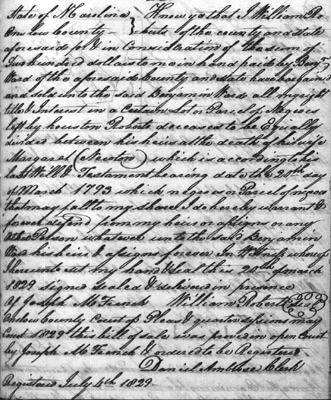 State of Carolina Know ye that I William Ro
Onslow County berts of the county and State
aforesaid for & in Consideration of the sum of
Two hundred dollars to me in hand paid by Benj
Ward of the aforesaid County and state have bargained
and sold unto the said Benjamin Ward all my right
title & Interest in a Certain Lot or Parcel of Negroes
left by houston Roberts deceased to be Equally
divided between his heirs at the death of his wife
Margaret (Newton) which is according to his
last Will & Testament bearing date the 20th day
of March 1793 which negroes or Parcel of negroes
that may fall to my share I do hereby warrant &
forever defend from my heirs or any
other Person whatever unto the said Benjamin
Ward his heirs & assigns forever In Witness whereof I
have unto set my hand & seal this 20th of march
1829 signed Sealed & delivered in presence
of Joseph McFrench William Roberts
Onslow County Court of Pleas & quarter sessions may
Court 1829 this bill of sale was proven in open Court
by Joseph McFrench & ordered to be Registered
Daniel Ambrose Clerk
Registered July 4th 1829.